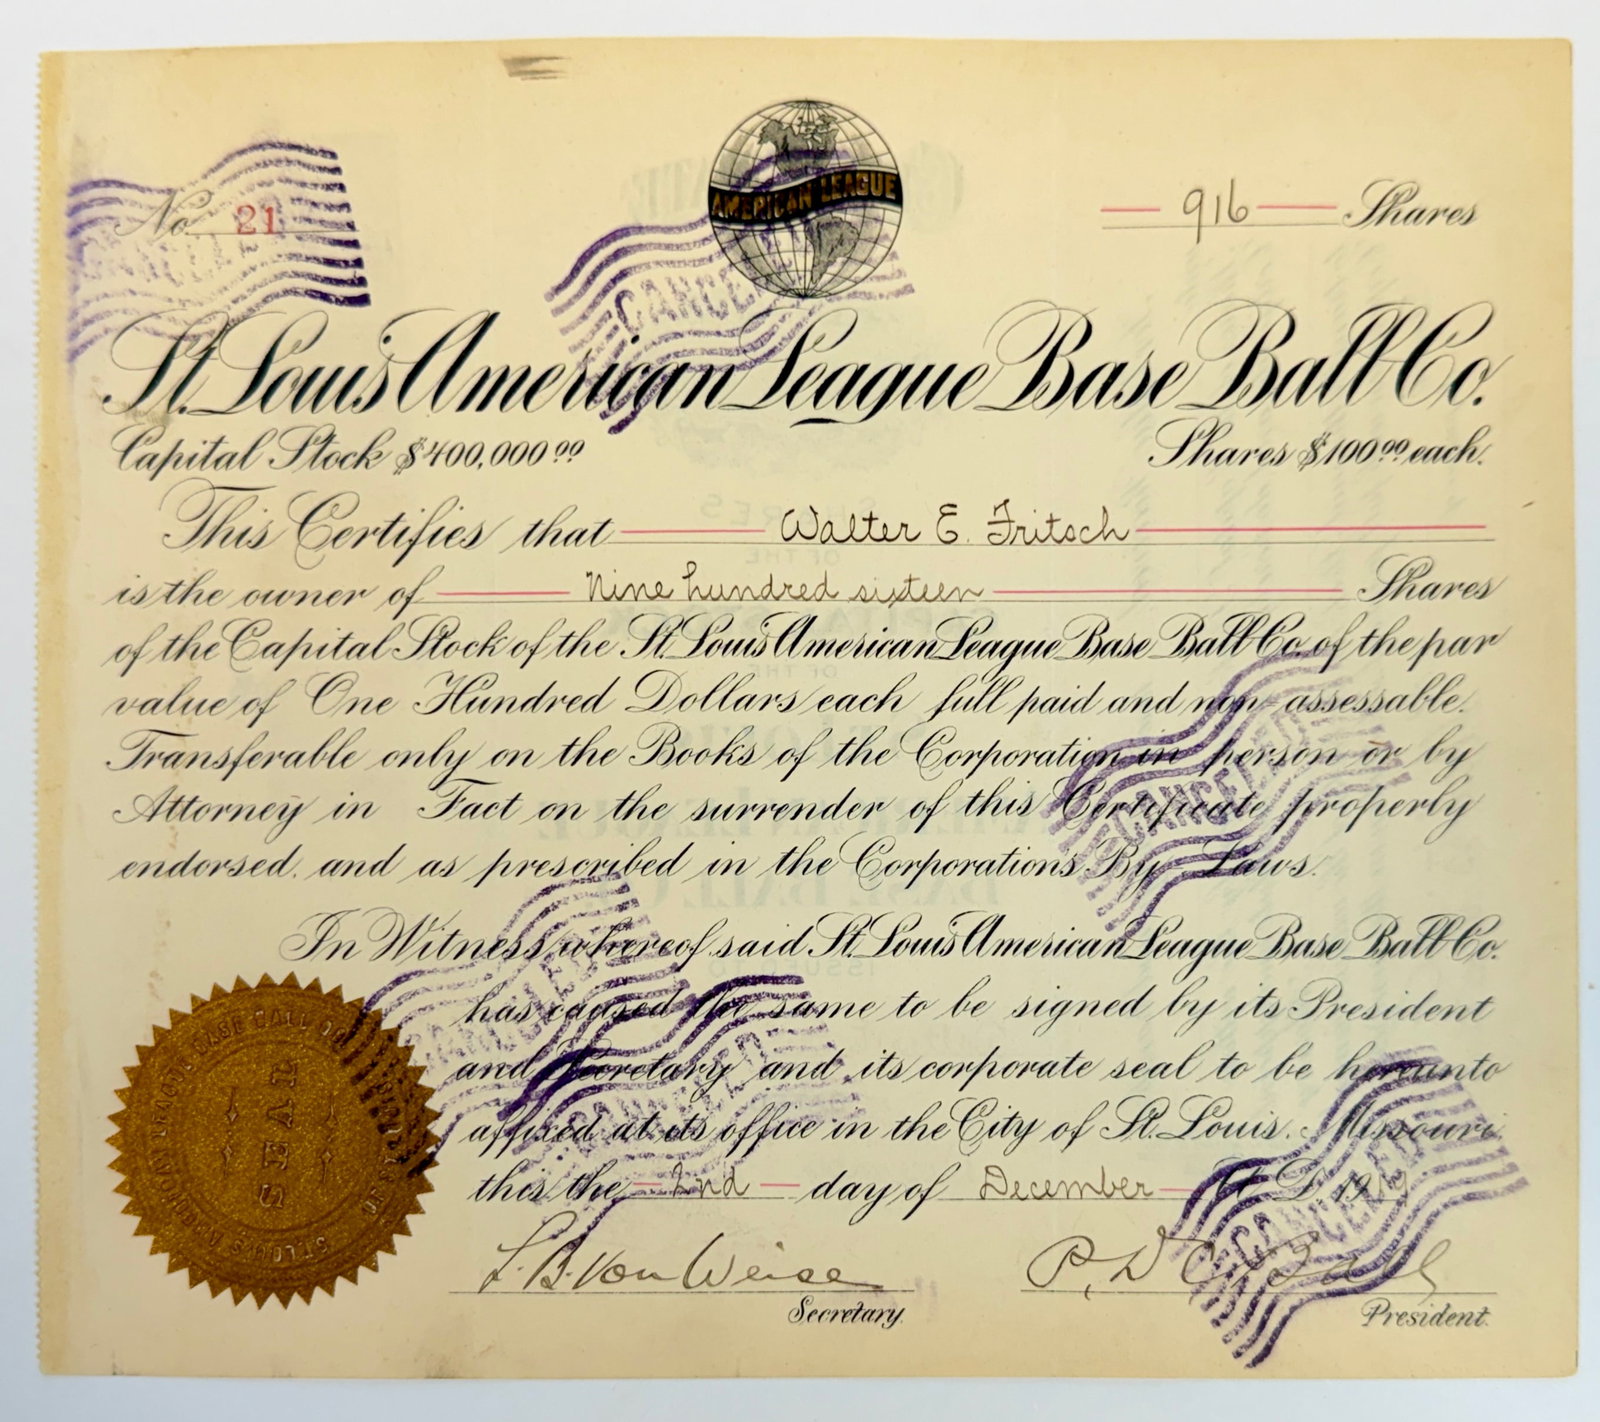 No. 21
AMERICAN LEAGUE
916 Shares
CANCELLED
St. Louis American League Base Ball Co.
Capital Stock $400,000.00
Shares $100.00 each.
This Certifies that Walter E. Fritsch
is the owner of Nine hundred sixteen Shares
of the Capital Stock of the St. Louis American League Base Ball Co. of the par
value of One Hundred Dollars each full paid and non assessable.
Transferable only on the Books of the Corporation in person or by
Attorney in Fact on the surrender of this Certificate properly
endorsed, and as prescribed in the Corporation's By Laws.
In Witness whereof said St. Louis American League Base Ball Co.
has caused the same to be signed by its President
and Secretary and its corporate seal to be hereunto
affixed at its office in the City of St. Louis. Missouri,
this the 2nd day of December A.D. 191
ST. LOUIS AMERICAN LEAGUE BASE BALL CO.
L. B. Von Weise
Secretary.
P. D. C. Ball
President.